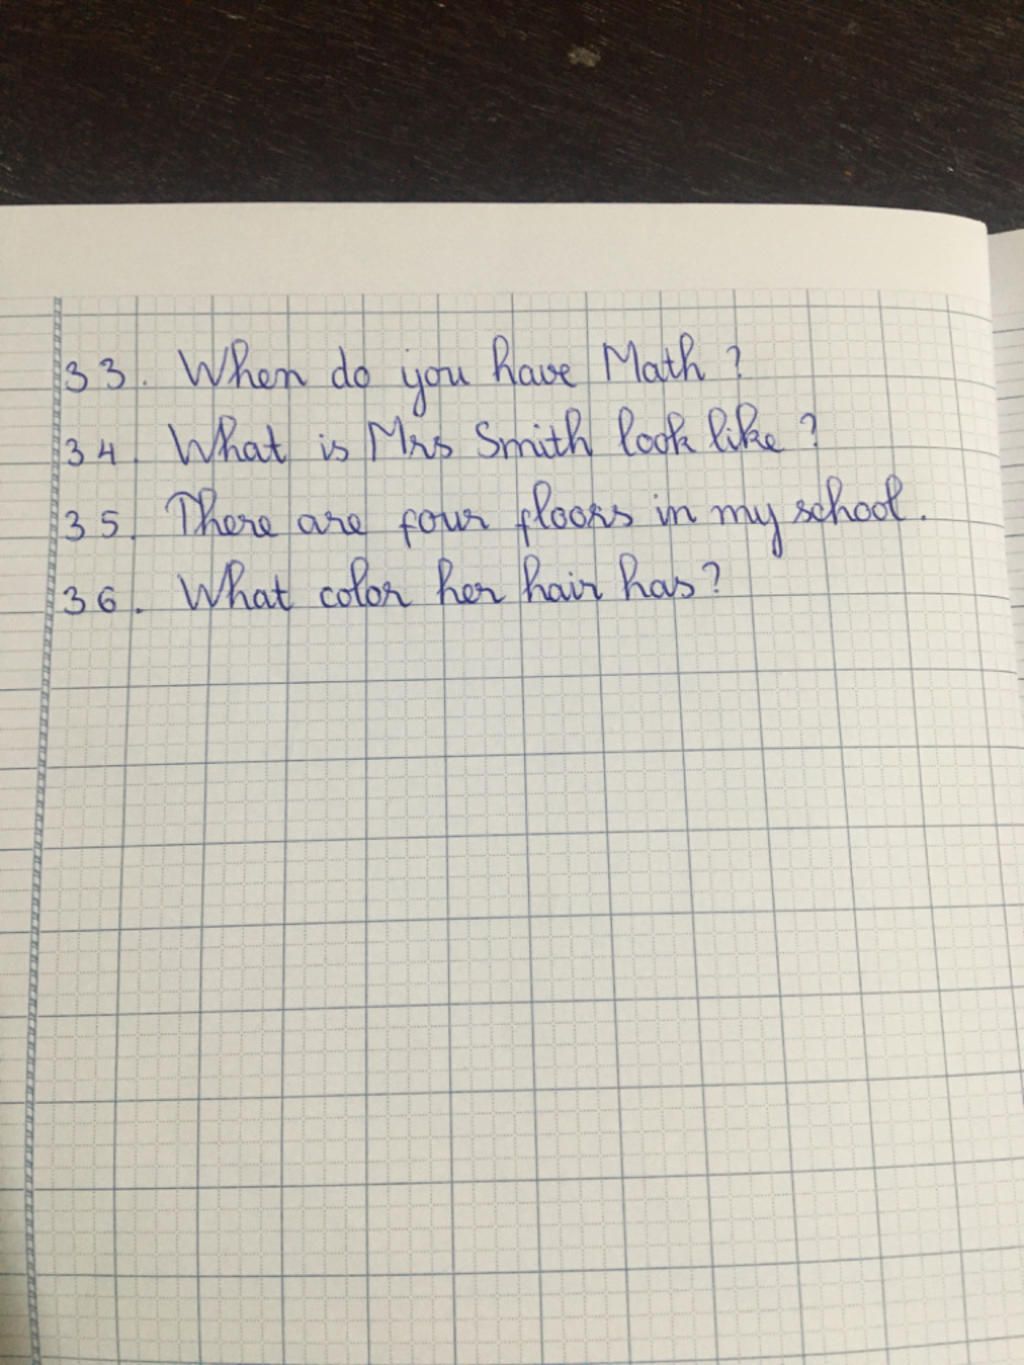 33. When do you have Math?
34. What is Mrs Smith look like?
35. There are four floors in my school.
36. What color her hair has?